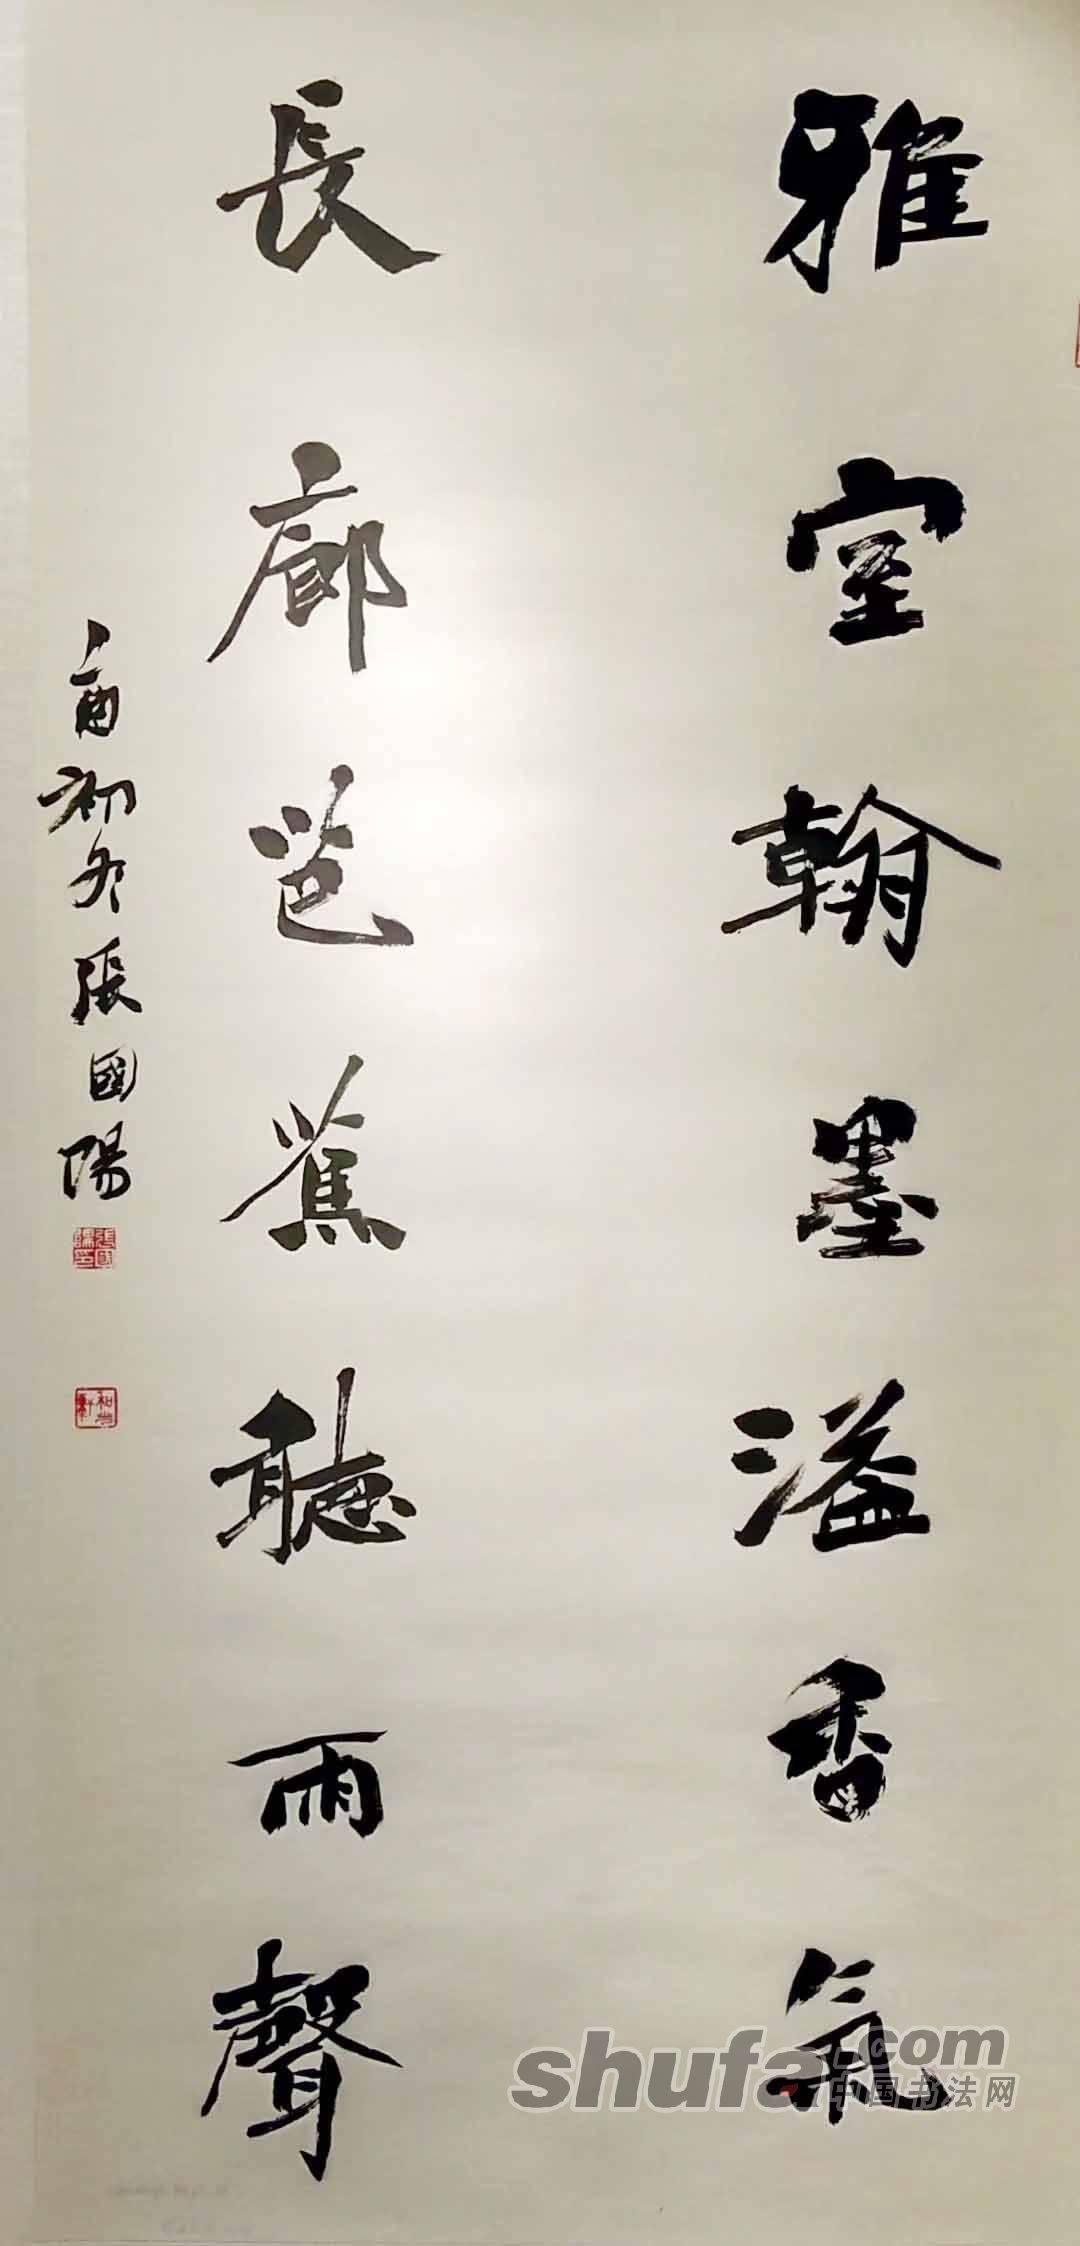 雅室翰墨溢香氣
長廊芭蕉聽雨聲
酉初冬張國陽
張國陽印
shufa.com
中国书法网